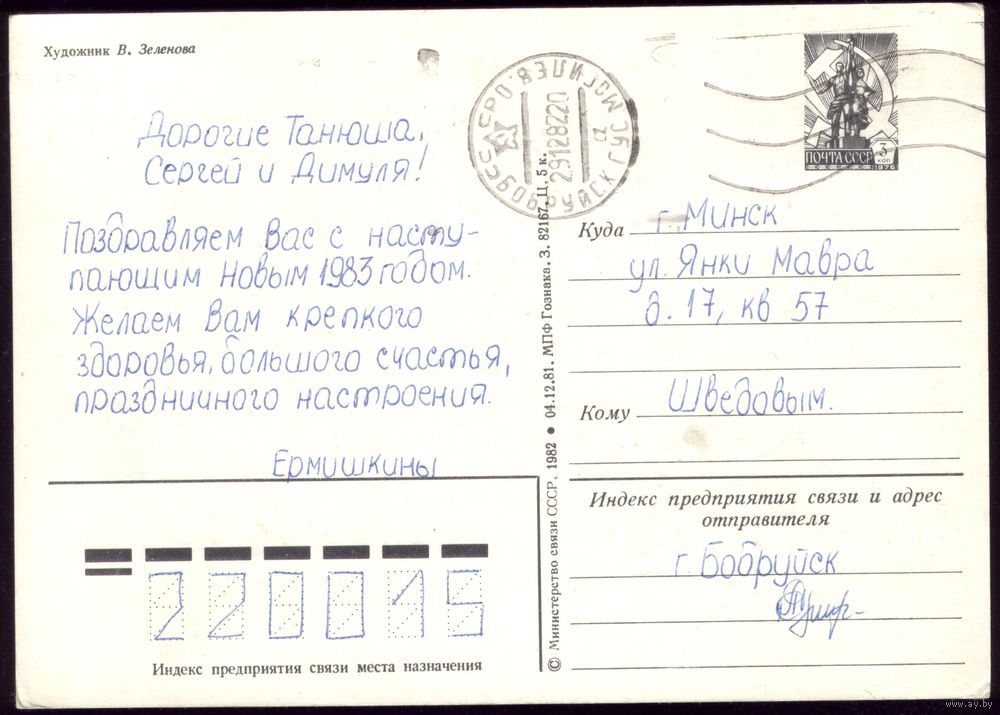 Художник В. Зеленова
Дорогие Танюша,
Сергей и Димуля!
Поздравляем Вас с насту-
пающим Новым 1983 годом.
Желаем Вам крепкого
здоровья, большого счастья,
праздничного настроения.
Ермишкины
220015
Индекс предприятия связи места назначения
© Министерство связи СССР, 1982 • 04.12.81. МПФ Гознака. З. 82167. Ц. 5 к.
БОБРУЙСК
МОГИЛЕВ.
29128220
ПОЧТА СССР
3
КОП
1976
Куда г. Минск
ул. Янки Мавра
д. 17, кв 57
Кому Шведовым.
Индекс предприятия связи и адрес
отправителя
г. Бобруйск
www.ay.by